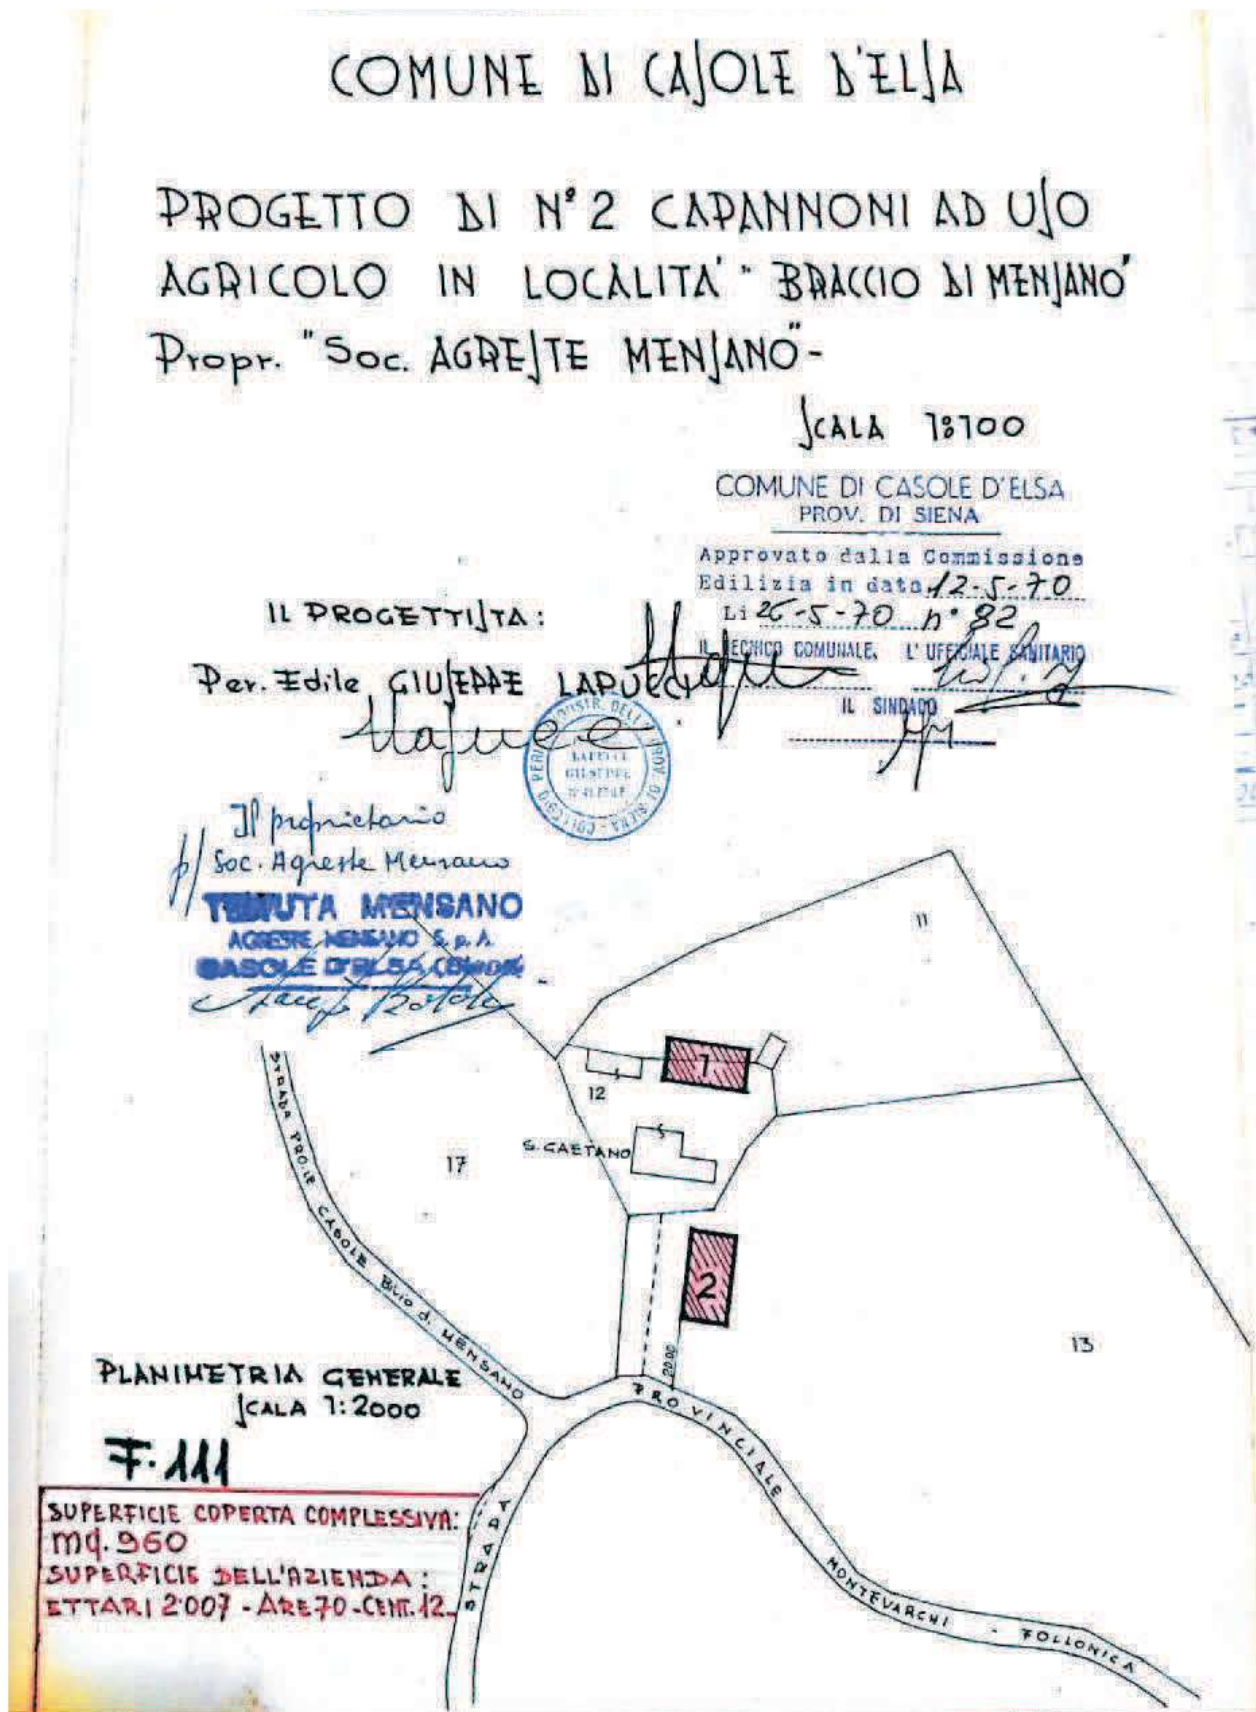 COMUNE DI CASOLE D'ELSA
PROGETTO DI N° 2 CAPANNONI AD USO
AGRICOLO IN LOCALITA' "BRACCIO DI MENSANO"
Propr. "Soc. AGRESTE MENSANO"-
SCALA 1:100
COMUNE DI CASOLE D'ELSA
PROV. DI SIENA
Approvato dalla Commissione
Edilizia in data 12-5-70
Li 26-5-70 n° 82
IL TECNICO COMUNALE. L'UFFICIALE SANITARIO
IL SINDACO
IL PROGETTISTA:
Per. Edile GIUSEPPE LAPUCCI
LAPUCCI
GIUSEPPE
PROV. DI SIENA - COLLEGIO
Il proprietario
p/ Soc. Agreste Mensano
TENUTA MENSANO
AGRESTE MENSANO S. p. A.
CASOLE D'ELSA (Siena)
11
1
12
S. GAETANO
17
2
13
20.00
STRADA PRO.LE CASOLE Bivio di MENSANO
PLANIMETRIA GENERALE
SCALA 1:2000
F. 111
STRADA PROVINCIALE MONTEVARCHI - FOLLONICA
SUPERFICIE COPERTA COMPLESSIVA:
mq. 960
SUPERFICIE DELL'AZIENDA:
ETTARI 2007 - ARE 70 - CENT. 12